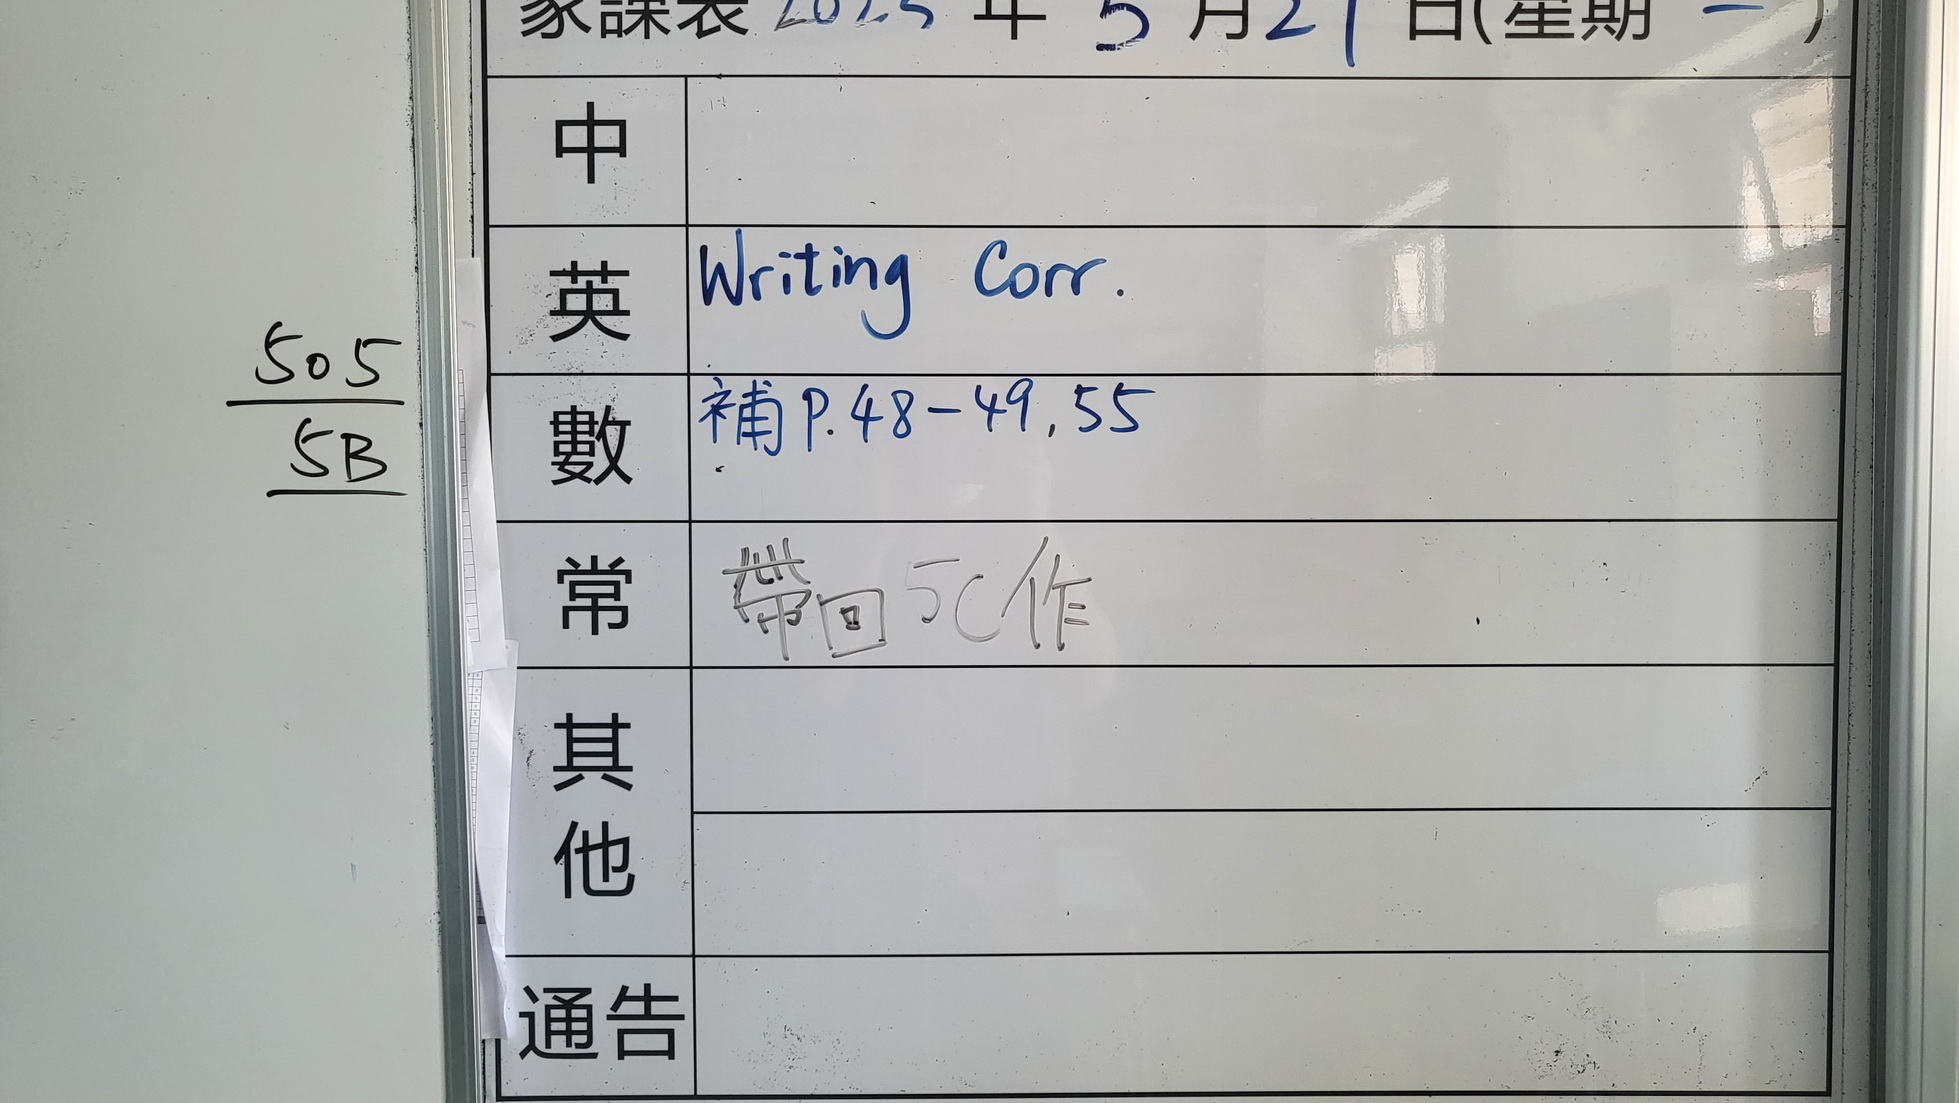 家課表 2025 年 5 月 21 日(星期 一 )
中
英 Writing Corr.
數 補 P.48-49, 55
常 帶回 5C 作
其他
通告
505
5B